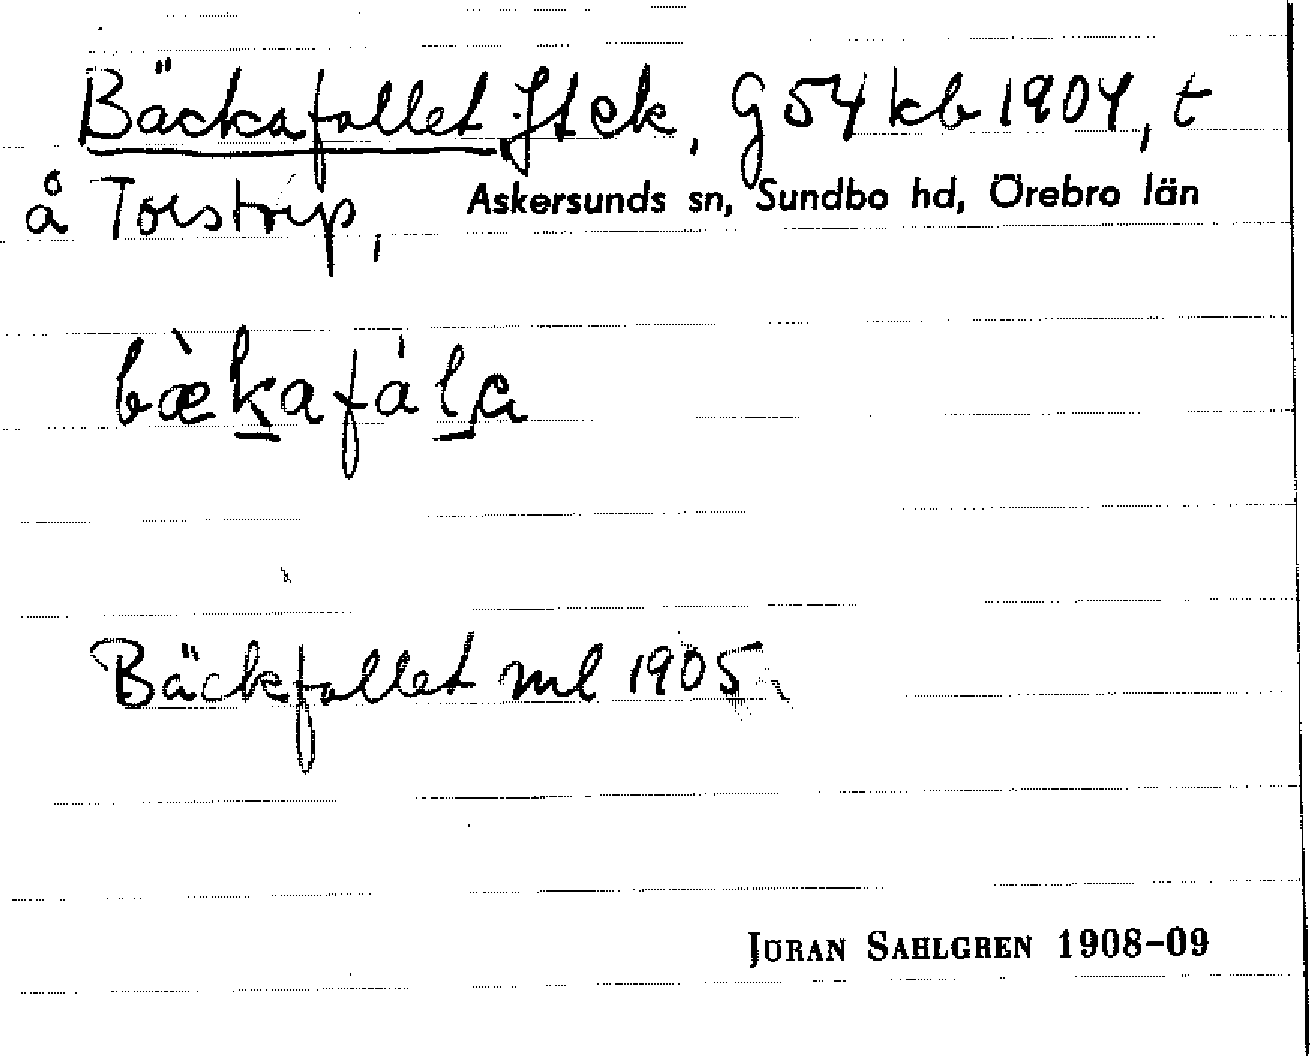 Bäckafallet, Jt ek, G 54 kb 1904, t
å Torstrip,
Askersunds sn, Sundbo hd, Örebro län
bæ̀kafáḷa
Bäckfallet ml 1905
JÖRAN SAHLGREN 1908–09